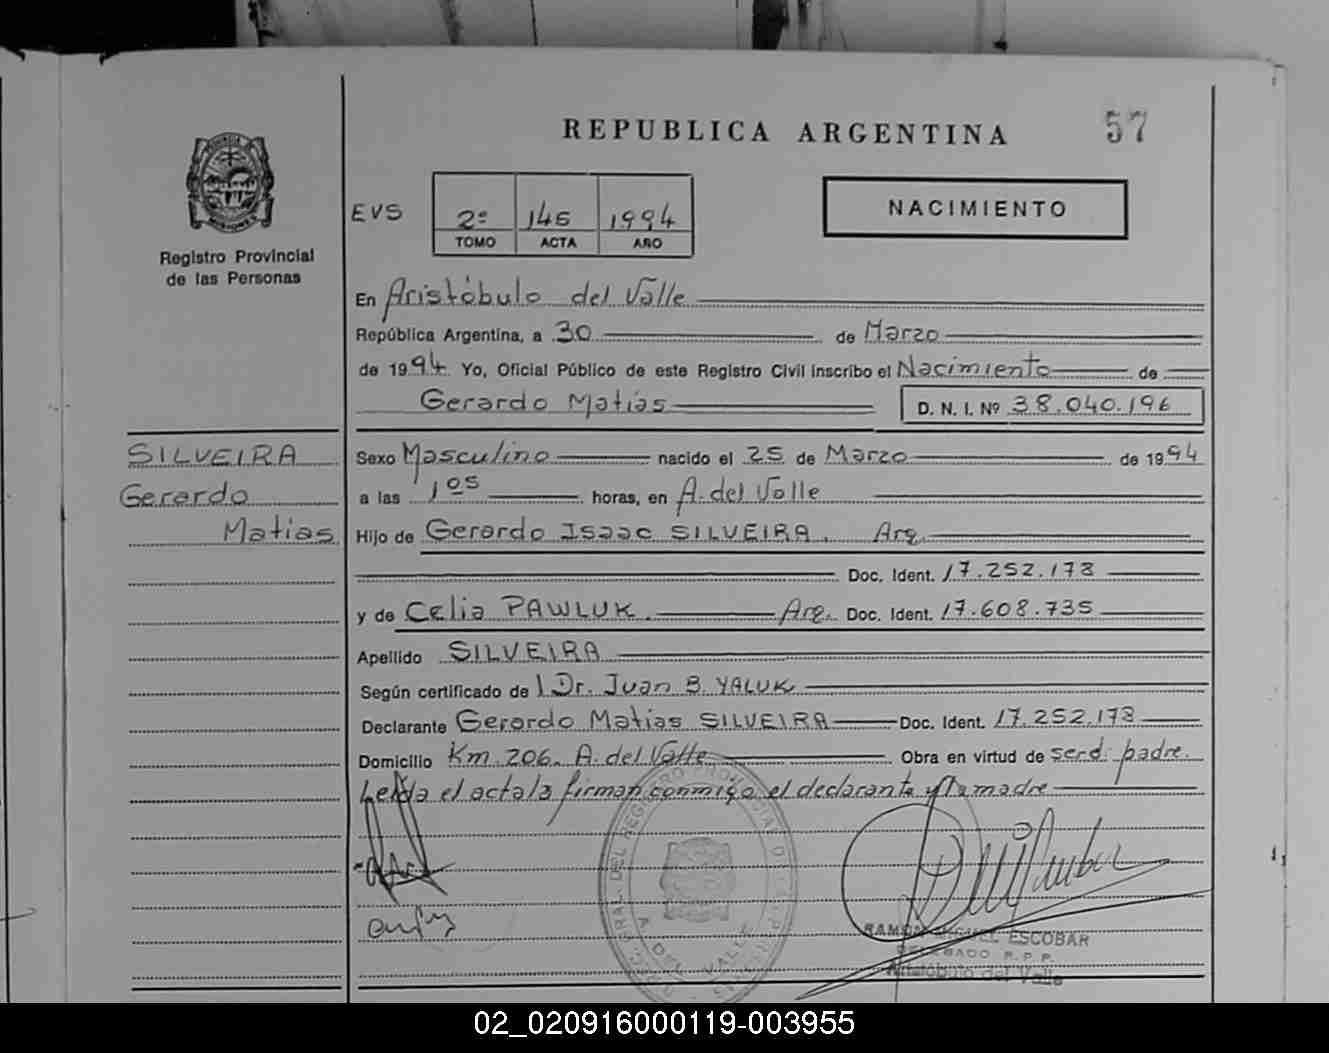 REPUBLICA ARGENTINA
57
Registro Provincial
de las Personas
EVS
2º 145 1994
TOMO ACTA AÑO
NACIMIENTO
En Aristóbulo del Valle
República Argentina, a 30 de Marzo
de 1994 Yo, Oficial Público de este Registro Civil inscribo el Nacimiento de
Gerardo Matías D. N. I. Nº 38.040.196
SILVEIRA
Gerardo
Matias
Sexo Masculino nacido el 25 de Marzo de 1994
a las 1 05 horas, en A. del Valle
Hijo de Gerardo Isaac SILVEIRA. Arg.
Doc. Ident. 17.252.178
y de Celia PAWLUK. Arg. Doc. Ident. 17.608.735
Apellido SILVEIRA
Según certificado de Dr. Juan B. YALUK
Declarante Gerardo Matias SILVEIRA Doc. Ident. 17.252.178
Domicilio Km. 206. A. del Valle. Obra en virtud de ser d. padre.
Leída el acta la firman conmigo el declarante y la madre
A. DEL VALLE
RAMON MIGUEL ESCOBAR
DELEGADO R.P.P.
Aristóbulo del Valle
02_020916000119-003955